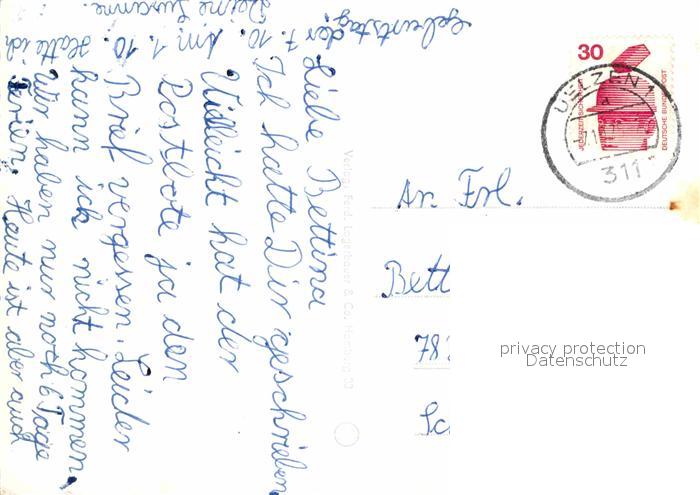 Liebe Bettina
Ich hatte Dir geschrieben
Vielleicht hat der
Postbote ja den
Brief vergessen. Leider
kann ich nicht kommen,
Wir haben nur noch 6 Tage
Ferien. Heute ist aber auch
Geburtstag.
der 7. 10. Am 1. 10. Hatte ich
Deine Susanne.
Verlag Ferd. Lagerbauer & Co., Hamburg
30
JEDERZEIT SICHERHEIT
DEUTSCHE BUNDESPOST
UELZEN 1
a
311
An Frl.
Bett
78
privacy protection
Datenschutz